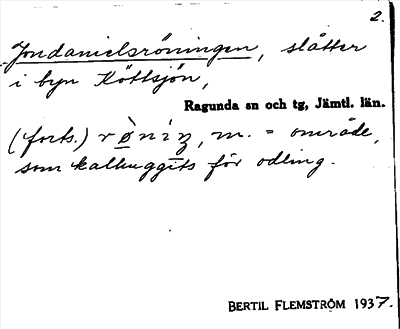 2.
Jondanielsröningen, slåtter
i byn Köttsjön,
Ragunda sn och tg, Jämtl. län.
(forts.) rø̀niŋ, m. = område,
som kalhuggits för odling.
BERTIL FLEMSTRÖM 1937.